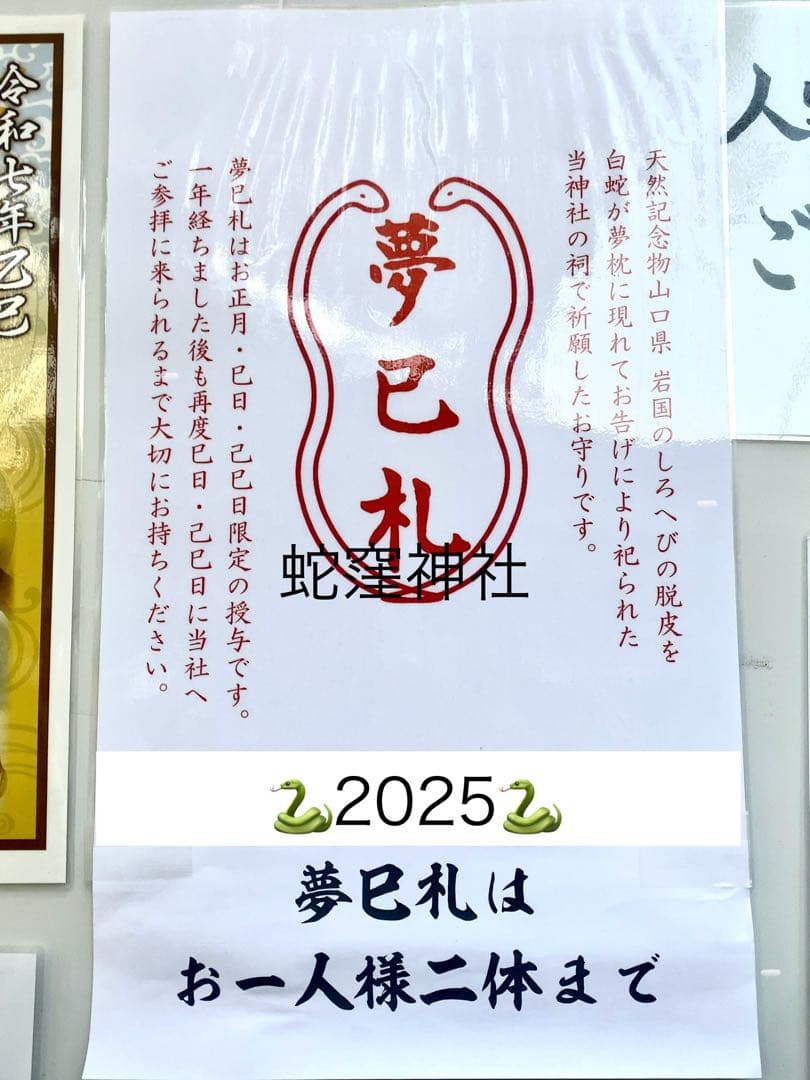 天然記念物山口県 岩国のしろへびの脱皮を
白蛇が夢枕に現れてお告げにより祀られた
当神社の祠で祈願したお守りです。
夢巳札
夢巳札はお正月・巳日・己巳日限定の授与です。
一年経ちました後も再度巳日・己巳日に当社へ
ご参拝に来られるまで大切にお持ちください。
蛇窪神社
🐍2025🐍
夢巳札は
お一人様二体まで
令和七年乙巳
人
ご